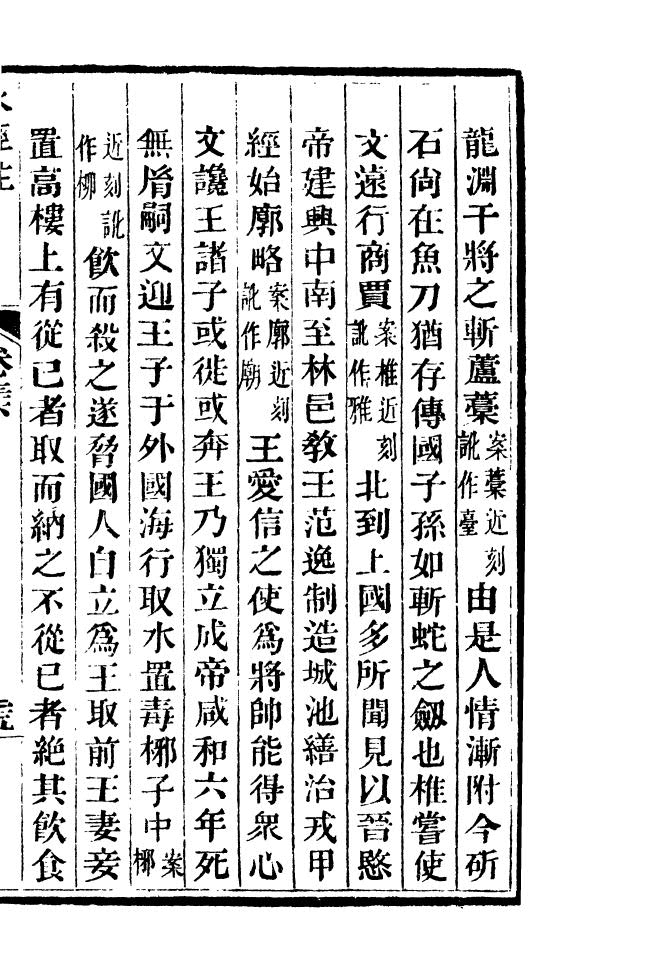 龍淵干將之斬蘆藳案藳近刻訛作臺由是人情漸附今斫
石尚在魚刀猶存傳國子孫如斬蛇之劔也椎嘗使
文遠行商賈案椎近刻訛作雅北到上國多所聞見以晉愍
帝建興中南至林邑敎王范逸制造城池繕治戎甲
經始廓略案廓近刻訛作廟王愛信之使爲將帥能得衆心
文讒王諸子或徙或奔王乃獨立成帝咸和六年死
無胥嗣文迎王子于外國海行取水置毒梛子中案梛
近刻訛作栁飮而殺之遂脅國人自立爲王取前王妻妾
置高樓上有從已者取而納之不從已者絶其飮食
水經注